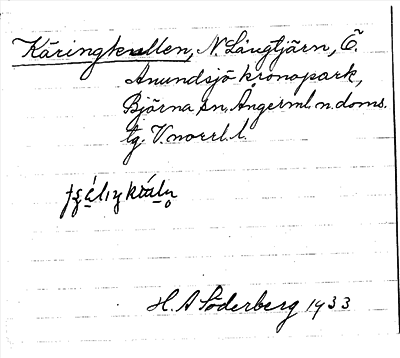 Käringkullen, N Långtjärn, Ö.
Anundsjö kronopark,
Björna sn, Ångerml. n. doms.
tg. V. norrl. l.
H. A Söderberg 1933